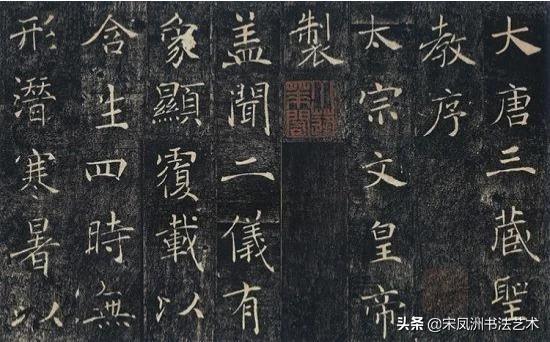 大唐三藏聖
教序
太宗文皇帝
製
盖聞二儀有
象顯覆載以
含生四時無
形潛寒暑以
头条 @宋凤洲书法艺术